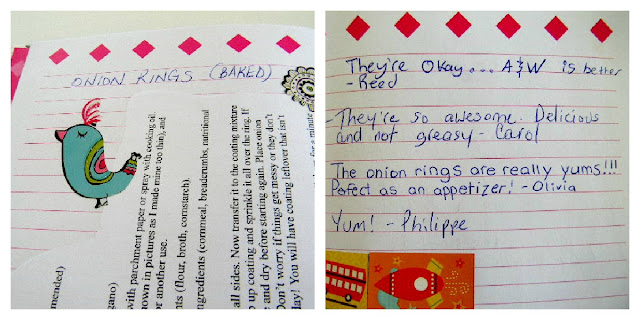 ONION RINGS (BAKED)
with parchment paper or spray with cooking oil
nown in pictures as I made mine too thin), and
or another use.
nts (flour, broth, cornstarch).
ngredients (cornmeal, breadcrumbs, nutritional
all sides. Now transfer it to the coating mixture
p up coating and sprinkle it all over the ring. If
e and dry before starting again. Place onion
Don't worry if things get messy or they don't
day! You will have coating leftover that isn't
for a minute
mmended)
gano)
They're Okay... A&W is better
- Reed
- They're so awesome. Delicious
and not greasy - Carol
The onion rings are really yums!!!
Perfect as an appetizer! - Olivia
Yum! - Philippe